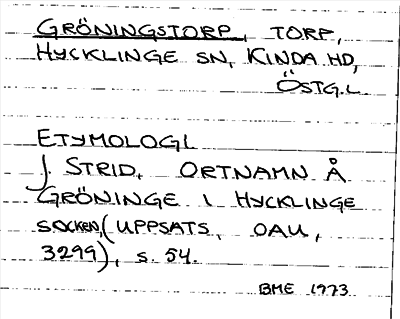 GRÖNINGSTORP, TORP,
HYCKLINGE SN, KINDA HD,
ÖSTG.L.
ETYMOLOGI
J. STRID, ORTNAMN Å
GRÖNINGE I HYCKLINGE
SOCKEN, (UPPSATS, OAU,
3299), s. 54.
BME 1973